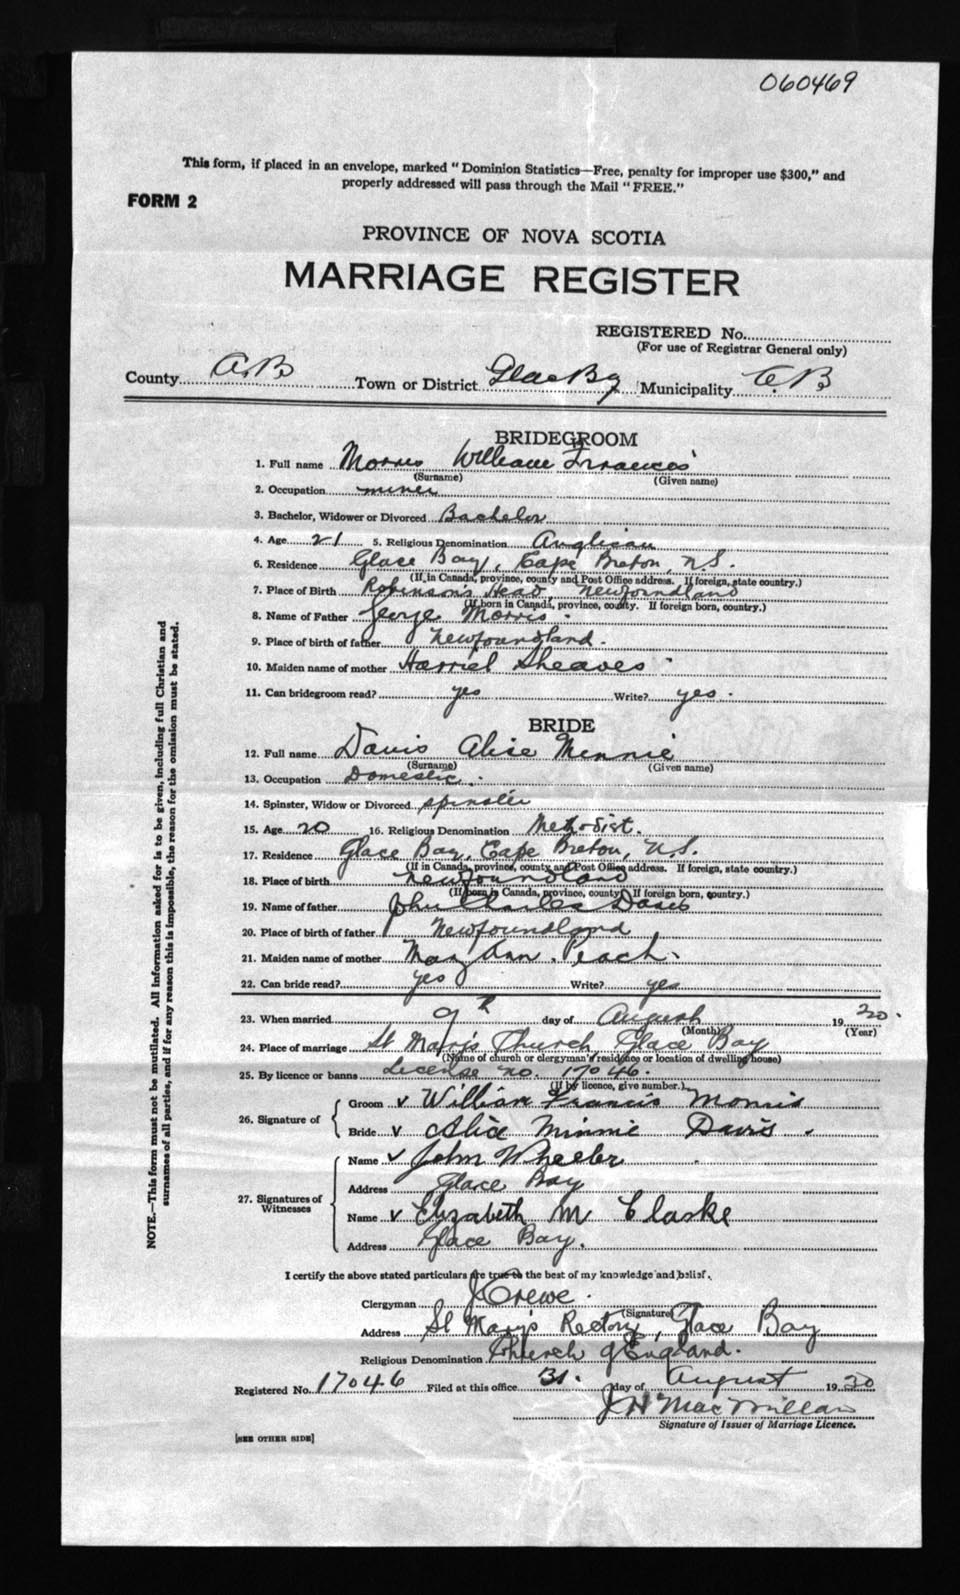 060469
This form, if placed in an envelope, marked "Dominion Statistics—Free, penalty for improper use $300," and
properly addressed will pass through the Mail "FREE."
FORM 2
PROVINCE OF NOVA SCOTIA
MARRIAGE REGISTER
REGISTERED No.
(For use of Registrar General only)
County C.B. Town or District Glace By Municipality C.B.
BRIDEGROOM
1. Full name Morris William Frances
(Surname) (Given name)
2. Occupation miner
3. Bachelor, Widower or Divorced Bachelor
4. Age 21 5. Religious Denomination Anglican
6. Residence Glace Bay, Cape Breton, N.S.
(If in Canada, province, county and Post Office address. If foreign, state country.)
7. Place of Birth Robinson's Head, Newfoundland
(If born in Canada, province, county. If foreign born, country.)
8. Name of Father George Morris.
9. Place of birth of father Newfoundland.
10. Maiden name of mother Harriet Sheaves
11. Can bridegroom read? yes Write? yes.
BRIDE
12. Full name Davis Alice Minnie
(Surname) (Given name)
13. Occupation Domestic.
14. Spinster, Widow or Divorced spinster
15. Age 20 16. Religious Denomination Methodist.
17. Residence Glace Bay, Cape Breton, N.S.
(If in Canada, province, county and Post Office address. If foreign, state country.)
18. Place of birth Newfoundland
(If born in Canada, province, county. If foreign born, country.)
19. Name of father John Charles Davis
20. Place of birth of father Newfoundland
21. Maiden name of mother Mary Ann. Peach.
22. Can bride read? yes Write? yes
23. When married 9th day of August 1920.
(Month) (Year)
24. Place of marriage St Mary's Church Glace Bay
(Name of church or clergyman's residence or location of dwelling house)
25. By licence or banns License no. 17046.
(If by licence, give number.)
26. Signature of Groom v William Francis Morris
Bride v Alice Minnie Davis.
27. Signatures of Witnesses Name v John Wheeler
Address Glace Bay
Name v Elizabeth M Clarke
Address Glace Bay.
I certify the above stated particulars are true to the best of my knowledge and belief.
Clergyman J Crewe.
(Signature)
Address St Mary's Rectory, Glace Bay
Religious Denomination Church of England.
Registered No. 17046 Filed at this office 31. day of August 1920
J H MacMillan
Signature of Issuer of Marriage Licence.
[SEE OTHER SIDE]
NOTE.—This form must not be mutilated. All information asked for is to be given, including full Christian and
surnames of all parties, and if for any reason this is impossible, the reason for the omission must be stated.